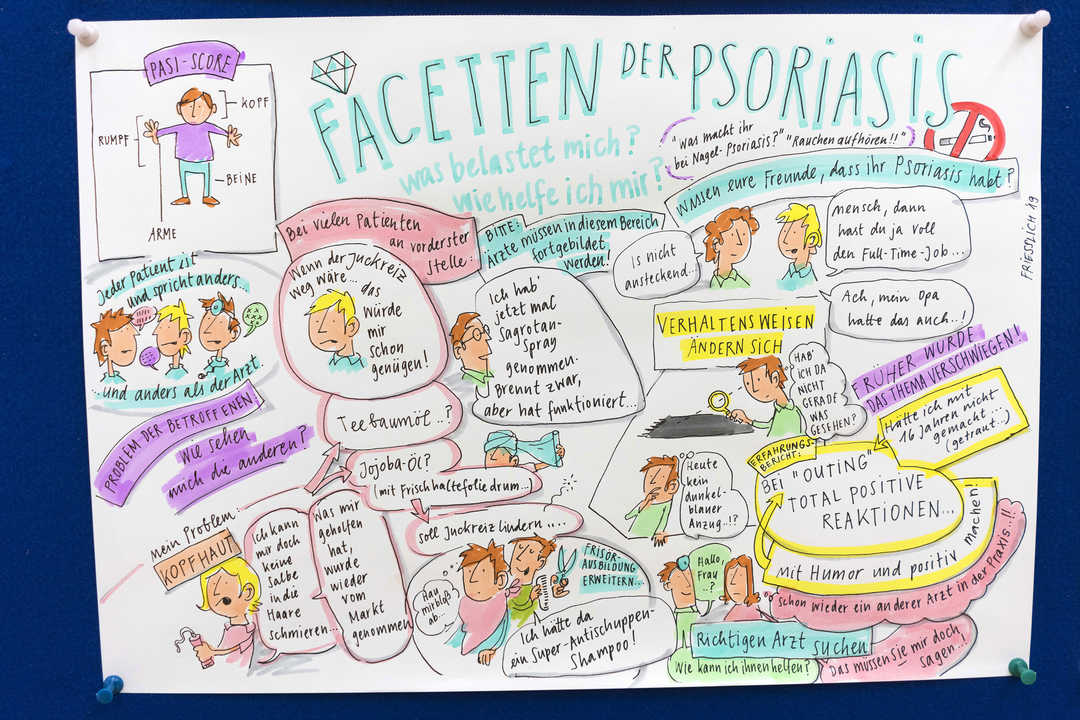 PASI-SCORE
KOPF
RUMPF
BEINE
ARME
FACETTEN DER PSORIASIS
was belastet mich?
wie helfe ich mir?
"was macht ihr
bei Nagel-Psoriasis?" "Rauchen aufhören!!"
Wissen eure Freunde, dass ihr Psoriasis habt?
FRIESSLICH 19
Jeder Patient ist
und spricht anders...
...und anders als der Arzt.
Bei vielen Patienten
an vorderster
Stelle:
Wenn der Juckreiz
weg wäre... das
würde
mir
schon
genügen!
BITTE:
Ärzte müssen in diesem Bereich
fortgebildet
werden!
Ich hab'
jetzt mal
Sagrotan-
spray
genommen.
Brennt zwar,
aber hat funktioniert...
Is nicht
ansteckend...
mensch, dann
hast du ja voll
den Full-Time-Job...
Ach, mein Opa
hatte das auch..!
VERHALTENSWEISEN
ÄNDERN SICH
HAB'
ICH DA
NICHT
GERADE
WAS
GESEHEN?
FRÜHER WURDE
DAS THEMA VERSCHWIEGEN!
Hätte ich mit
16 Jahren nicht
gemacht...
(getraut...)
PROBLEM DER BETROFFENEN:
Wie sehen
mich die anderen?
Teebaumöl..?
Jojoba-Öl?
(mit Frischhaltefolie drum...)
soll Juckreiz lindern....
Heute
kein
dunkel-
blauer
Anzug..!?
ERFAHRUNGS-
BERICHT:
BEI "OUTING"
TOTAL POSITIVE
REAKTIONEN...
mit Humor und positiv machen!
mein Problem:
KOPFHAUT
ich kann
mir doch
keine
Salbe
in die
Haare
schmieren...
was mir
geholfen
hat,
wurde
wieder
vom
Markt
genommen
Hau
mir bloß
ab...
FRISÖR-
AUSBILDUNG
ERWEITERN...
Ich hätte da
ein Super-Antischuppen-
Shampoo!
Hallo,
Frau
..?
schon wieder ein anderer Arzt in der Praxis..!!
Richtigen Arzt suchen
Wie kann ich ihnen helfen?
Das müssen Sie mir doch
sagen...